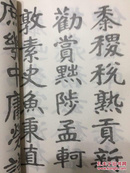 黍稷税熟貢新
勸賞黜陟孟軻
敦素史魚秉直
庶幾中庸